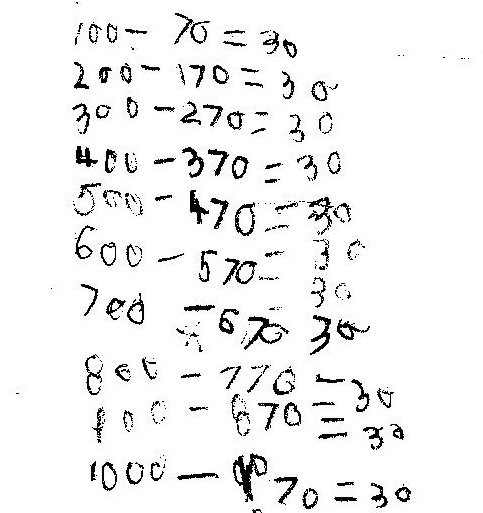 100 - 70 = 30
200 - 170 = 30
300 - 270 = 30
400 - 370 = 30
500 - 470 = 30
600 - 570 = 30
700 - 670 30
800 - 770 = 30
900 - 870 = 30
1000 - 970 = 30